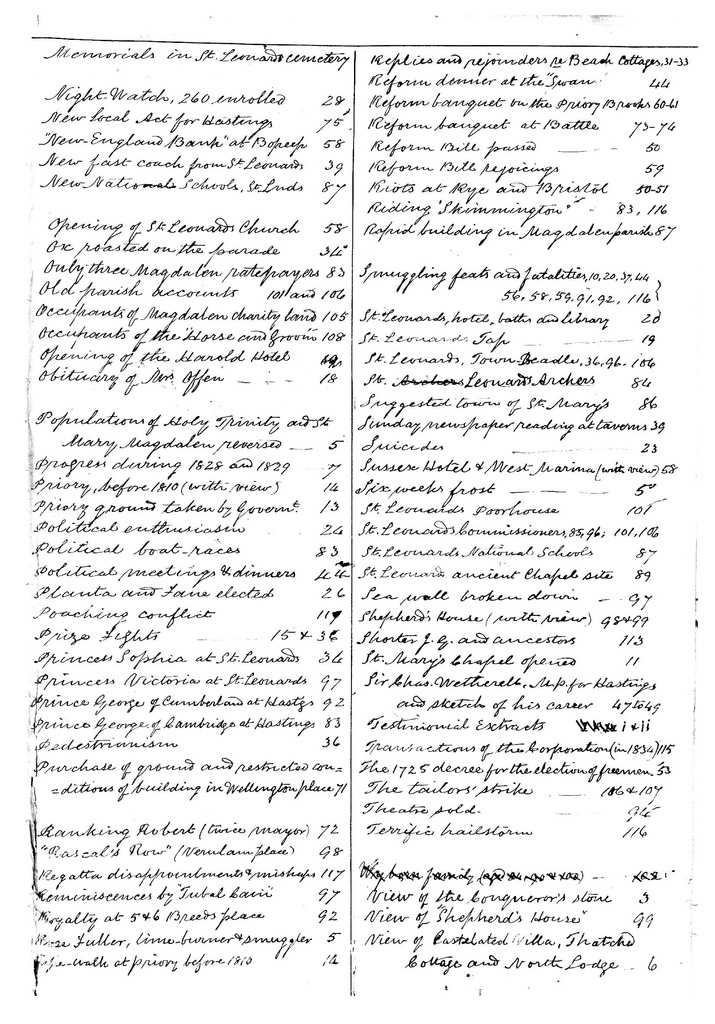 Memorials in St. Leonards cemetery
Night-Watch, 260 enrolled 28
New local Act for Hastings 75
"New-England Bank" at Bopeep 58
New fast coach from St. Leonards 39
New National Schools, St. Lnds 87
Opening of St. Leonards Church 58
Ox roasted on the parade 34
Only three Magdalen ratepayers 83
Old parish accounts 101 and 106
Occupants of Magdalen charity land 105
Occupants of the "Horse and Groom" 108
Opening of the Harold Hotel
Obituary of Mrs. Offen — - — 18
Populations of Holy Trinity and St
Mary Magdalen reversed — 5
Progress during 1828 and 1829 7
Priory, before 1810 (with view) 14
Priory ground taken by Governt. 13
Political enthusiasm 24
Political boat-races 83
Political meetings & dinners 44
Planta and Fane elected 26
Poaching conflict
Prize Fights — 15 & 36
Princess Sophia at St. Leonards 34
Princess Victoria at St. Leonards 97
Prince George of Cumberland at Hastgs 92
Prince George of Cambridge at Hastings 83
Pedestrianism 36
Purchase of ground and restricted con=
=ditions of building in Wellington place 71
Ranking Robert (twice mayor) 72
"Rascal's Row" (Verulam place) 98
Regatta disappointments & mishaps 117
Reminiscences by "Tubal Cain" 97
Royalty at 5 & 6 Breeds place 92
Rose Fuller, lime-burner & smuggler 5
Rope-walk at Priory before 1810 14
Replies and rejoinders re Beach Cottages, 31-33
Reform dinner at the "Swan" 44
Reform banquet on the Priory Brooks 60-61
Reform banquet at Battle 73-74
Reform Bill passed — - — 50
Reform Bill rejoicings 59
Riots at Rye and Bristol 50-51
Riding "Skimmington" - 83, 116
Rapid building in Magdalen parish 87
Smuggling feats and fatalities, 10, 20, 37, 44
56, 58, 59, 91, 92, 116
St. Leonards, hotel, baths and library 20
St. Leonards Tap — 19
St. Leonards, Town Beadle, 36, 96, 106
St. Archers Leonards Archers 84
Suggested town of St. Mary's 86
Sunday newspaper reading at taverns 39
Suicides — 23
Sussex Hotel & West Marina (with view) 58
Six weeks frost — - — 5
St. Leonards Poorhouse 101
St. Leonards Commissioners, 85, 96; 101, 106
St. Leonards National Schools 87
St. Leonard ancient Chapel site 89
Sea wall broken down — 97
Shepherd's House (with view) 98 & 99
Shorter J. G. and ancestors 113
St. Mary's Chapel opened 11
Sir Chas. Wetherell, M.p. for Hastings
and sketch of his career 47 to 49
Testimonial Extracts i & ii
Transactions of the Corporation (in 1834) 115
The 1725 decree for the election of freemen 53
The tailors' strike — 106 & 107
Theatre sold.
Terrific hailstorm 116
family
View of the Conqueror's stone 3
View of "Shepherd's House" 99
View of Castelated Villa, Thatched
Cottage and North Lodge — 6